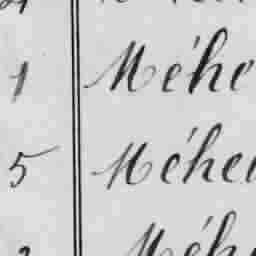 1 Méhe
5 Méhe
Méh